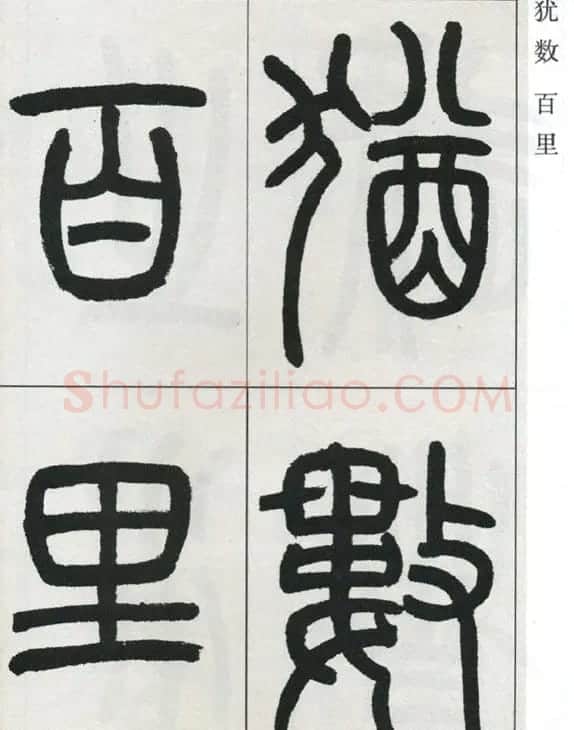 犹数 百里
猶數
百里
Shufaziliao.COM